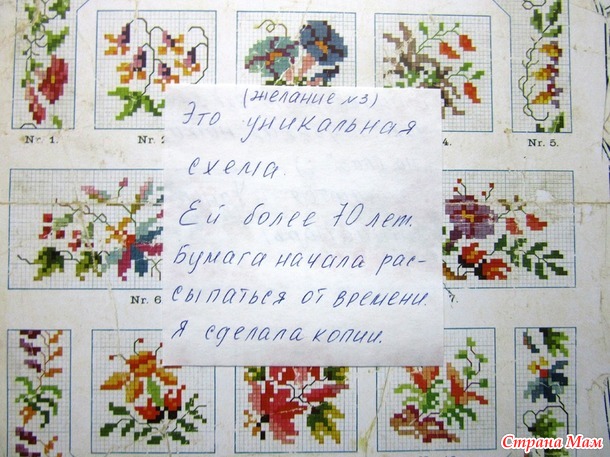 (желание №3)
Это уникальная
схема.
Ей более 70 лет.
Бумага начала рас-
сыпаться от времени.
Я сделала копии.
Nr. 1.
Nr. 2
4.
Nr. 5.
Nr. 6
7.
Страна Мам